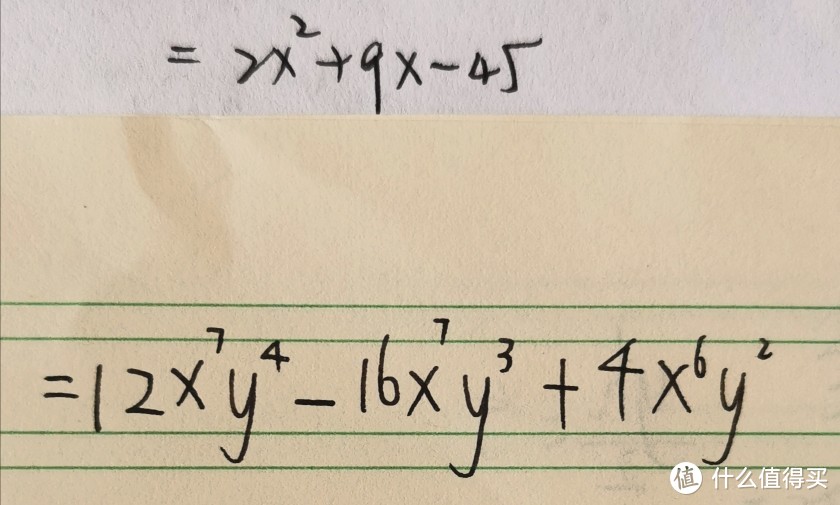 = 2x²+9x-45
=12x⁷y⁴-16x⁷y³+4x⁶y²
值 什么值得买